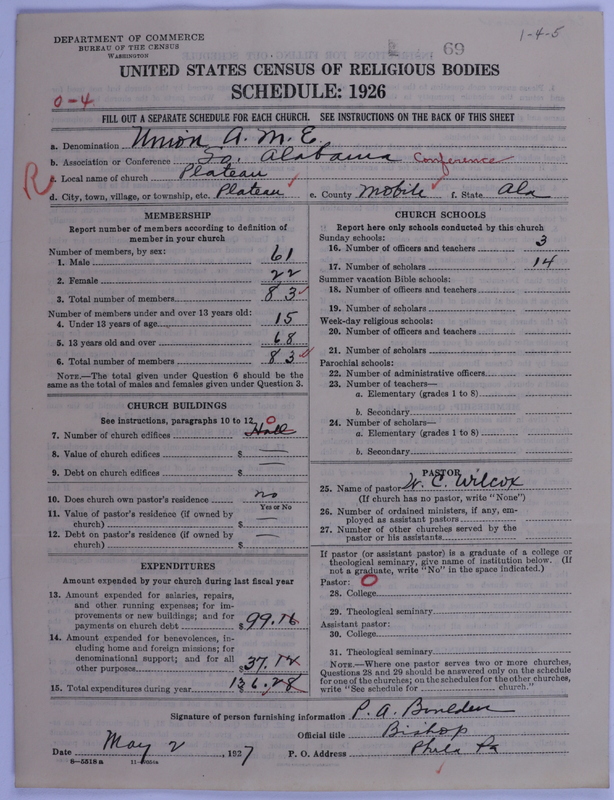 1-4-5
69
DEPARTMENT OF COMMERCE
BUREAU OF THE CENSUS
WASHINGTON
UNITED STATES CENSUS OF RELIGIOUS BODIES
SCHEDULE: 1926
0-4
FILL OUT A SEPARATE SCHEDULE FOR EACH CHURCH. SEE INSTRUCTIONS ON THE BACK OF THIS SHEET
a. Denomination Union A. M. E.
b. Association or Conference So. Alabama Conference
R
c. Local name of church Plateau
d. City, town, village, or township, etc. Plateau e. County Mobile f. State Ala
MEMBERSHIP
Report number of members according to definition of
member in your church
Number of members, by sex:
1. Male 61
2. Female 22
3. Total number of members 83
Number of members under and over 13 years old:
4. Under 13 years of age 15
5. 13 years old and over 68
6. Total number of members 83
NOTE.—The total given under Question 6 should be
same as the total of males and females given under Question 3.
CHURCH BUILDINGS
See instructions, paragraphs 10 to 12 0
7. Number of church edifices Hall
8. Value of church edifices $ —
9. Debt on church edifices $ —
10. Does church own pastor's residence no
Yes or No
11. Value of pastor's residence (if owned by
church) $ —
12. Debt on pastor's residence (if owned by
church) $ —
EXPENDITURES
Amount expended by your church during last fiscal year
13. Amount expended for salaries, repairs,
and other running expenses; for im-
provements or new buildings; and for
payments on church debt $ 99.16
14. Amount expended for benevolences, in-
cluding home and foreign missions; for
denominational support; and for all
other purposes $ 37.12
15. Total expenditures during year 136.28
CHURCH SCHOOLS
Report here only schools conducted by this church
Sunday schools:
16. Number of officers and teachers 3
17. Number of scholars 14
Summer vacation Bible schools:
18. Number of officers and teachers
19. Number of scholars
Week-day religious schools:
20. Number of officers and teachers
21. Number of scholars
Parochial schools:
22. Number of administrative officers
23. Number of teachers—
a. Elementary (grades 1 to 8)
b. Secondary
24. Number of scholars—
a. Elementary (grades 1 to 8)
b. Secondary
PASTOR
25. Name of pastor W. C. Wilcox
(If church has no pastor, write "None")
26. Number of ordained ministers, if any, em-
ployed as assistant pastors
27. Number of other churches served by the
pastor or his assistants
If pastor (or assistant pastor) is a graduate of a college or
theological seminary, give name of institution below. (If
not a graduate, write "No" in the space indicated.)
Pastor: 0
28. College
29. Theological seminary
Assistant pastor:
30. College
31. Theological seminary
NOTE.—Where one pastor serves two or more churches,
Questions 28 and 29 should be answered only on the schedule
for one of the churches; on the schedules for the other churches,
write "See schedule for church."
Signature of person furnishing information P. A. Boulden
Official title Bishop
Date May 2, 1927 P. O. Address Phila Pa
8—5518 a